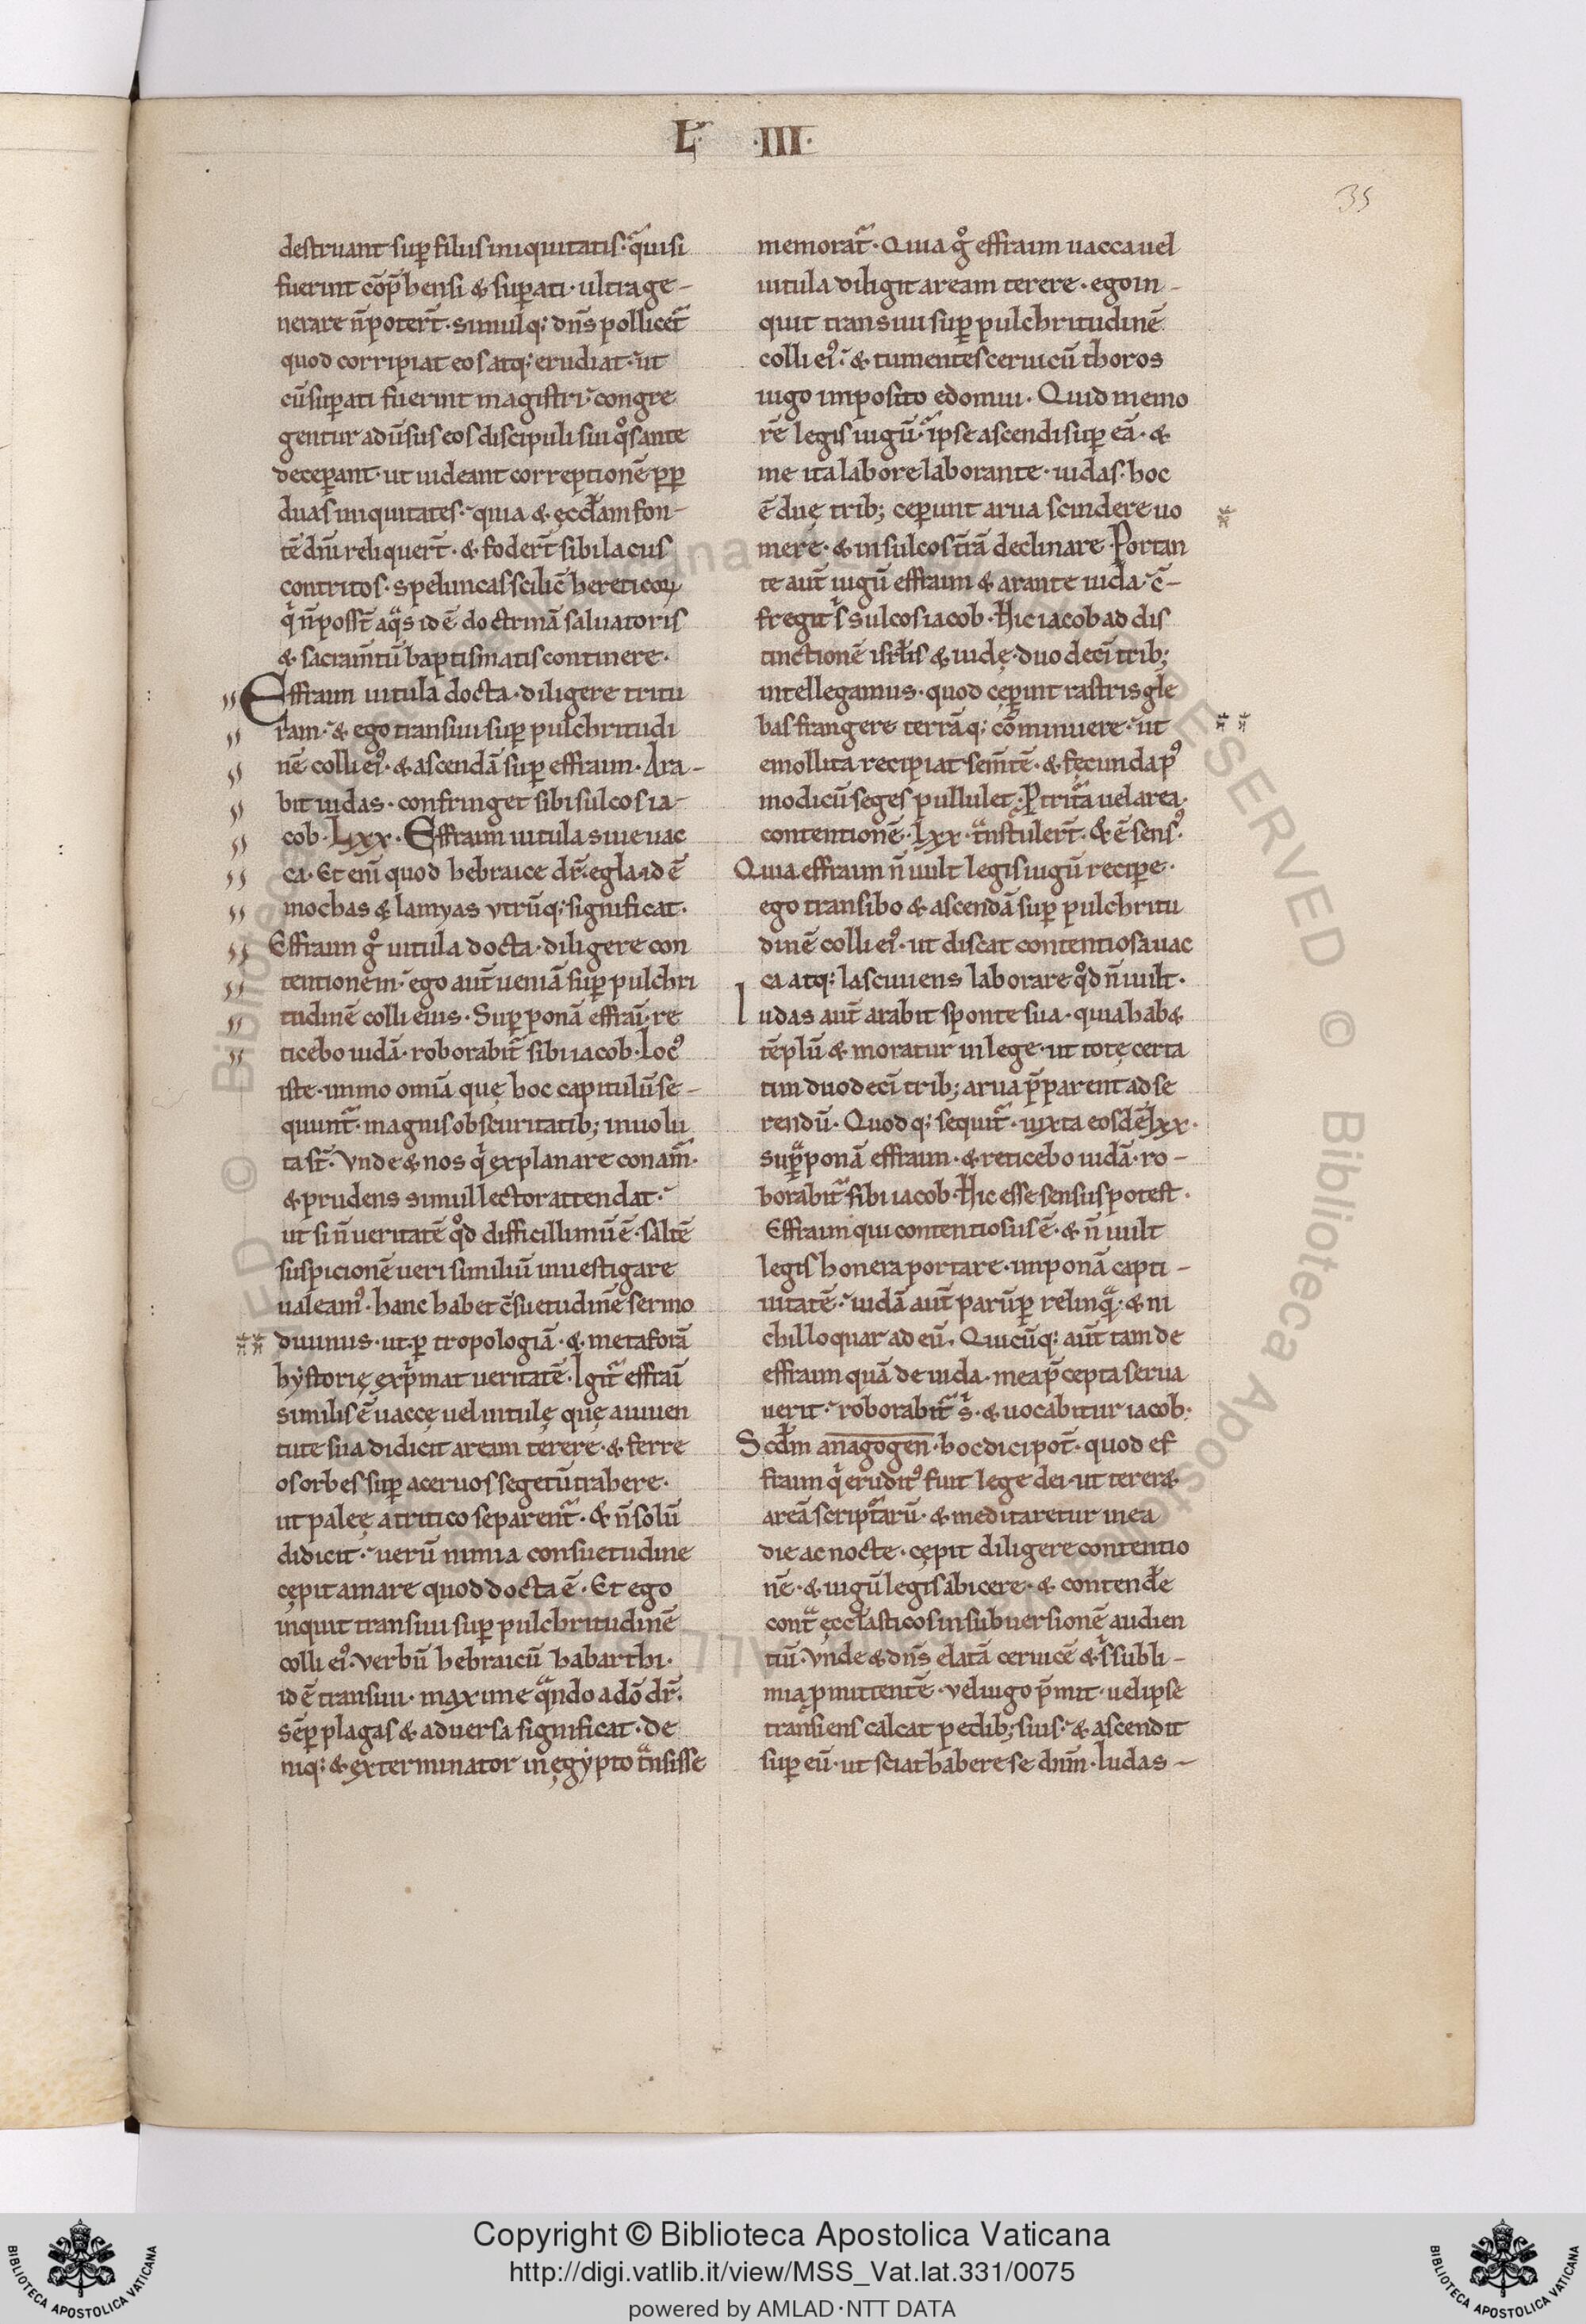 L. ·III·
35
destruant sup̲ filius iniquitatis. qͣ uisi
fuerint cōp̄hensi & sup̲ati· ultra ge-
nerare n̄ poterт̄· simulq; dn̄s pollicet̄
quod corripiat eos atq; erudiat· ut
cū sup̲ati fuerint magistri· congre
gentur adū̄sus eos discipuli sui qͦs ante
decep̲ant· ut uideant correptionē p̲p̲
duas iniquitates· quia & ęccl̄am fon-
tē dn̄i reliquer̄t· & foder̄t sibi lacus
contritos· speluncas scilic̄ hereticoꝝ
qͥ n̄ poss̄t aqͣs id ē doctrinā saluatoris
& sacram̄tū baptismatis continere·
Effraim uitula docta· diligere tritu
ram· & ego transiui sup̲ pulchritudi
nē colli ei᷒· & ascendā sup̲ effraim· Ara-
bit iudas· confringet sibi sulcos ia-
cob· Lxx· Effraim uitula siue uac
ca· Et eni̅ quod hebraice dr̄· egla· id ē
mochas & lamyas vtrūq; significat·
Effraim gͦ uitula docta· diligere con
tentionem· ego aut̄ ueniā sup̲ pulchri
tudinē colli eius· Sup̲ponā effraī· re
ticebo iudā· roborabit̄ sibi iacob· Loc᷒
iste· immo om̄ia quę hoc capitulū se-
quunt̄· magnis obscuritatib; inuolu
ta st̄· Vnde & nos qͥ explanare conam̄·
& prudens simul lector attendat·
ut si n̄ ueritatē qͦd difficillimū ē· saltē
suspicionē ueri similiū inuestigare
ualeam᷒· hanc habet c̄suetudinē sermo
diuinus· ut p̲ tropologiā· & metaforā
hystorię exp̄mat ueritatē· Igit̄ effraī
similis ē uaccę uel uitulę quę a iuuen
tute sua didicit aream terere· & ferre
os orbes sup̲ aceruos segetū trahere·
ut paleę a tritico separent̄· & n̄ solū
didicit· uerū nimia consuetudine
cępit amare quod docta ē· Et ego
inquit transiui sup̲ pulchritudinē
colli ei᷒· verbū hebraicū habarthi·
id ē transiui· maxime qͣndo a dō dr̄·
sēp̲ plagas & aduersa significat· de
niq; & exterminator in ęgypto tͣnsisse
memorat̄· Quia gͦ effraim uacca uel
uitula diligit aream terere· ego in-
quit transiui sup̲ pulchritudinē
colli ei᷒· & tumentes ceruicū thoros
iugo imposito edomui· Quid memo
rē legis iugū· ipse ascendi sup̲ eā· &
me ita labore laborante· iudas· hoc
ē duę trib; cep̲unt arua scindere uo
mere· & in sulcos t̄rā declinare· Portan
te aut̄ iugū effraim & arante iuda· c̄-
fregit sͥ sulcos iacob· Hic iacob ad dis
tinctionē isrl̄is & iudę· duodecī trib;
intellegamus· quod cęp̲int rastris gle
bas frangere terrāq; cōminuere· ut
emollita recipiat sem̄tē· & fęcunda p᷒
modicū seges pullulet· P̲ tritͣa uel area·
contentionē· Lxx· tͣnstuler̄t· & ē sens᷒·
Quia effraim n̄ uult legis iugū recip̲e·
ego transibo & ascendā sup̲ pulchritu
dinē colli ei᷒· ut discat contentiosa uac
ca atq; lasciuiens laborare qͦd n̄ uult·
Iudas aut̄ arabit sponte sua· quia hab&
tēplū & moratur in lege· ut totę certa
tim duodecī trib; arua p̄parent ad se
rendū· Quodq; sequit̄· iuxta eosdē Lxx·
sup̲ponā effraim· & reticebo iudā· ro-
borabit̄ sibi iacob· Hic esse sensus potest·
Effraim qui contentiosus ē· & n̄ uult
legis honera portare· imponā capti-
uitatē· iudā aut̄ parūp̲ relinqͣ· & ni
chil loquar ad eū· Quicūq; aut̄ tam de
effraim quā de iuda· mea p̄cepta serua
uerit· roborabit̄ sͥ· & uocabitur iacob·
Scd̄m anagogen· hoc dici pot̄· quod ef
fraim qͥ erudit᷒ fuit lege dei· ut terer&
areā scriptͣarū· & meditaretur in ea
die ac nocte· cępit diligere contentio
nē· & iugū legis abicere· & contend̄e
contͣ ęccl̄asticos in subuersionē audien
tiū· Vnde & dn̄s elatā ceruicē & sͥ subli-
mia p̲mittentē· vel iugo p̄mit· uel ipse
transiens calcat pedib; suis· & ascendit
sup̲ eū· ut sciat habere se dn̄m· Iudas-
Copyright © Biblioteca Apostolica Vaticana
http://digi.vatlib.it/view/MSS_Vat.lat.331/0075
powered by AMLAD·NTT DATA
BIBLIOTECA APOSTOLICA VATICANA
BIBLIOTECA APOSTOLICA VATICANA